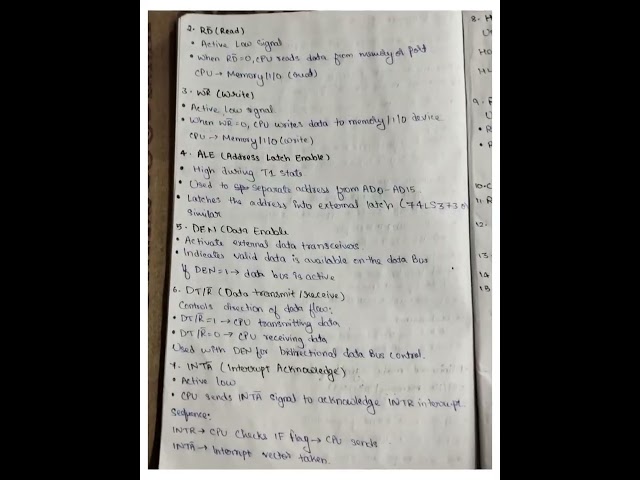 2. RD̅ (Read)
• Active Low Signal
• When RD̅=0, CPU reads data from memory or port
CPU → Memory/I/O (read)
3. WR̅ (Write)
• Active Low signal
• When WR̅=0, CPU writes data to memory/I/O device
CPU → Memory/I/O (write)
4. ALE (Address Latch Enable)
• High during T1 state
• Used to separate address from AD0-AD15
• Latches the address into external latch (74LS373 or
similar
5. DEN (Data Enable
• Activate external data transceivers
• Indicates valid data is available on the data Bus
If DEN=1 → data bus is active
6. DT/R̅ (Data transmit/receive)
Controls direction of data flow:
• DT/R̅=1 → CPU transmitting data
• DT/R̅=0 → CPU receiving data
Used with DEN for bidirectional data Bus control.
7. INTA̅ (Interrupt Acknowledge)
• Active low
• CPU sends INTA̅ signal to acknowledge INTR interrupt.
sequence.
INTR → CPU checks IF flag → CPU sends
INTA̅ → Interrupt vector taken.
8. H
HO
HL
9. R
10. C
11. R
12.
13
14
15